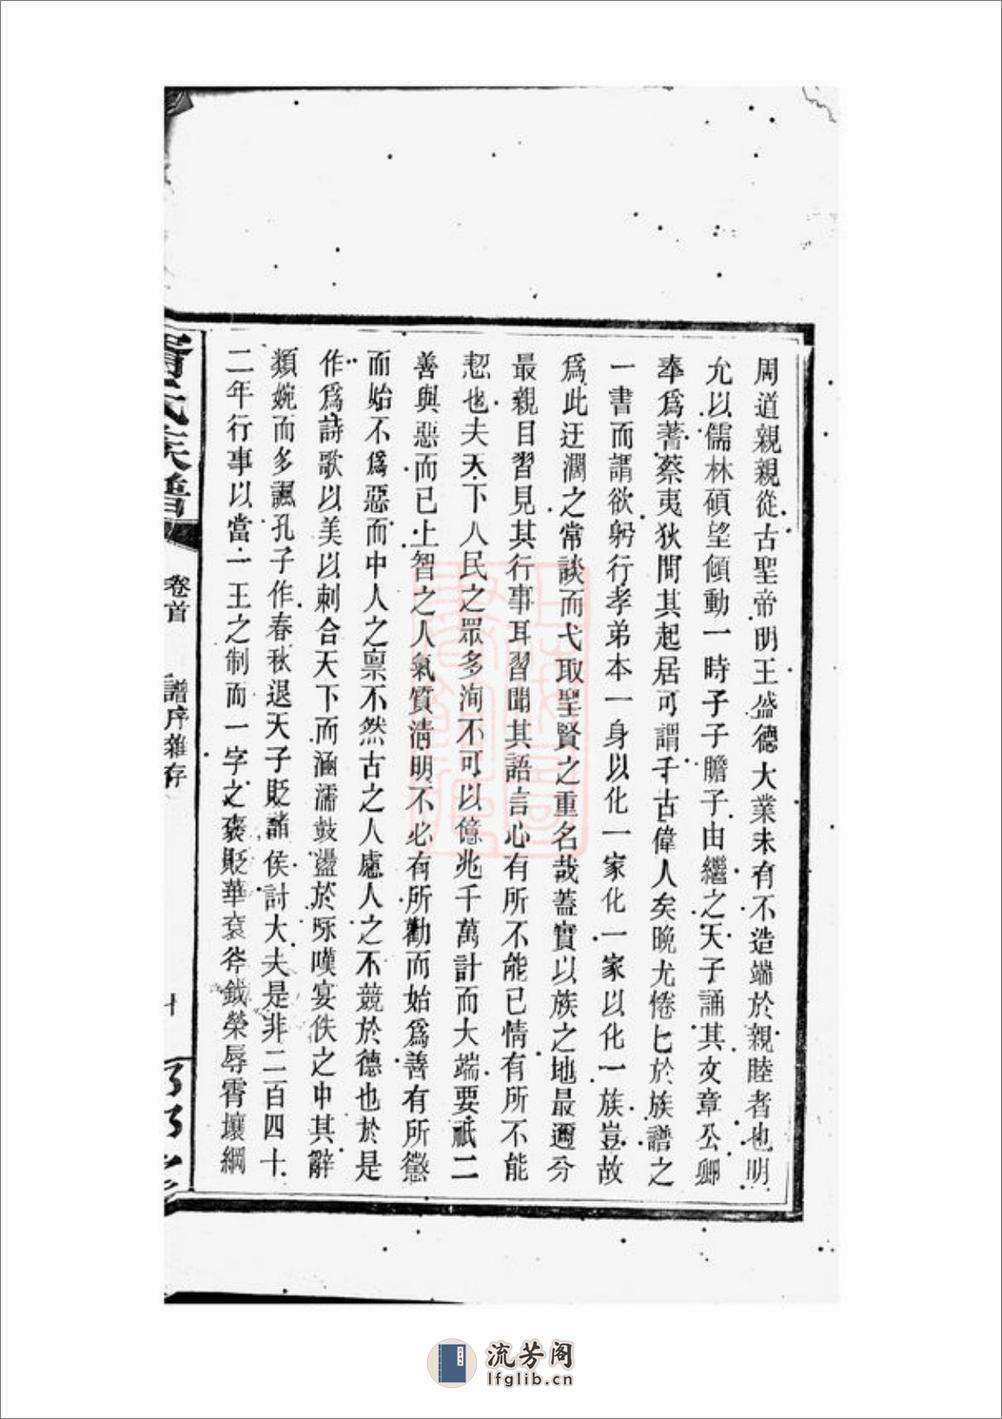 周道親親從古聖帝明王盛德大業未有不造端於親睦者也明
允以儒林碩望傾動一時子子瞻子由繼之天子誦其文章公卿
奉爲蓍蔡夷狄間其起居可謂千古偉人矣晚尤惓匕於族譜之
一書而謂欲躬行孝弟本一身以化一家化一家以化一族豈故
爲此迂濶之常談而弋取聖賢之重名哉蓋實以族之地最邇分
最親目習見其行事耳習聞其語言心有所不能已情有所不能
恝也夫天下人民之眾多洵不可以億兆千萬計而大端要祇二
善與惡而已上智之人氣質清明不必有所勸而始爲善有所懲
而始不爲惡而中人之禀不然古之人慮人之不競於德也於是
作爲詩歌以美以刺合天下而涵濡鼓盪於咏嘆宴佚之中其辭
類婉而多諷孔子作春秋退天子貶諸侯討大夫是非二百四十
二年行事以當一王之制而一字之褒貶華袞斧鉞榮辱霄壤綱
氏族譜
卷首
譜序雜存
十
流芳阁
lfglib.cn